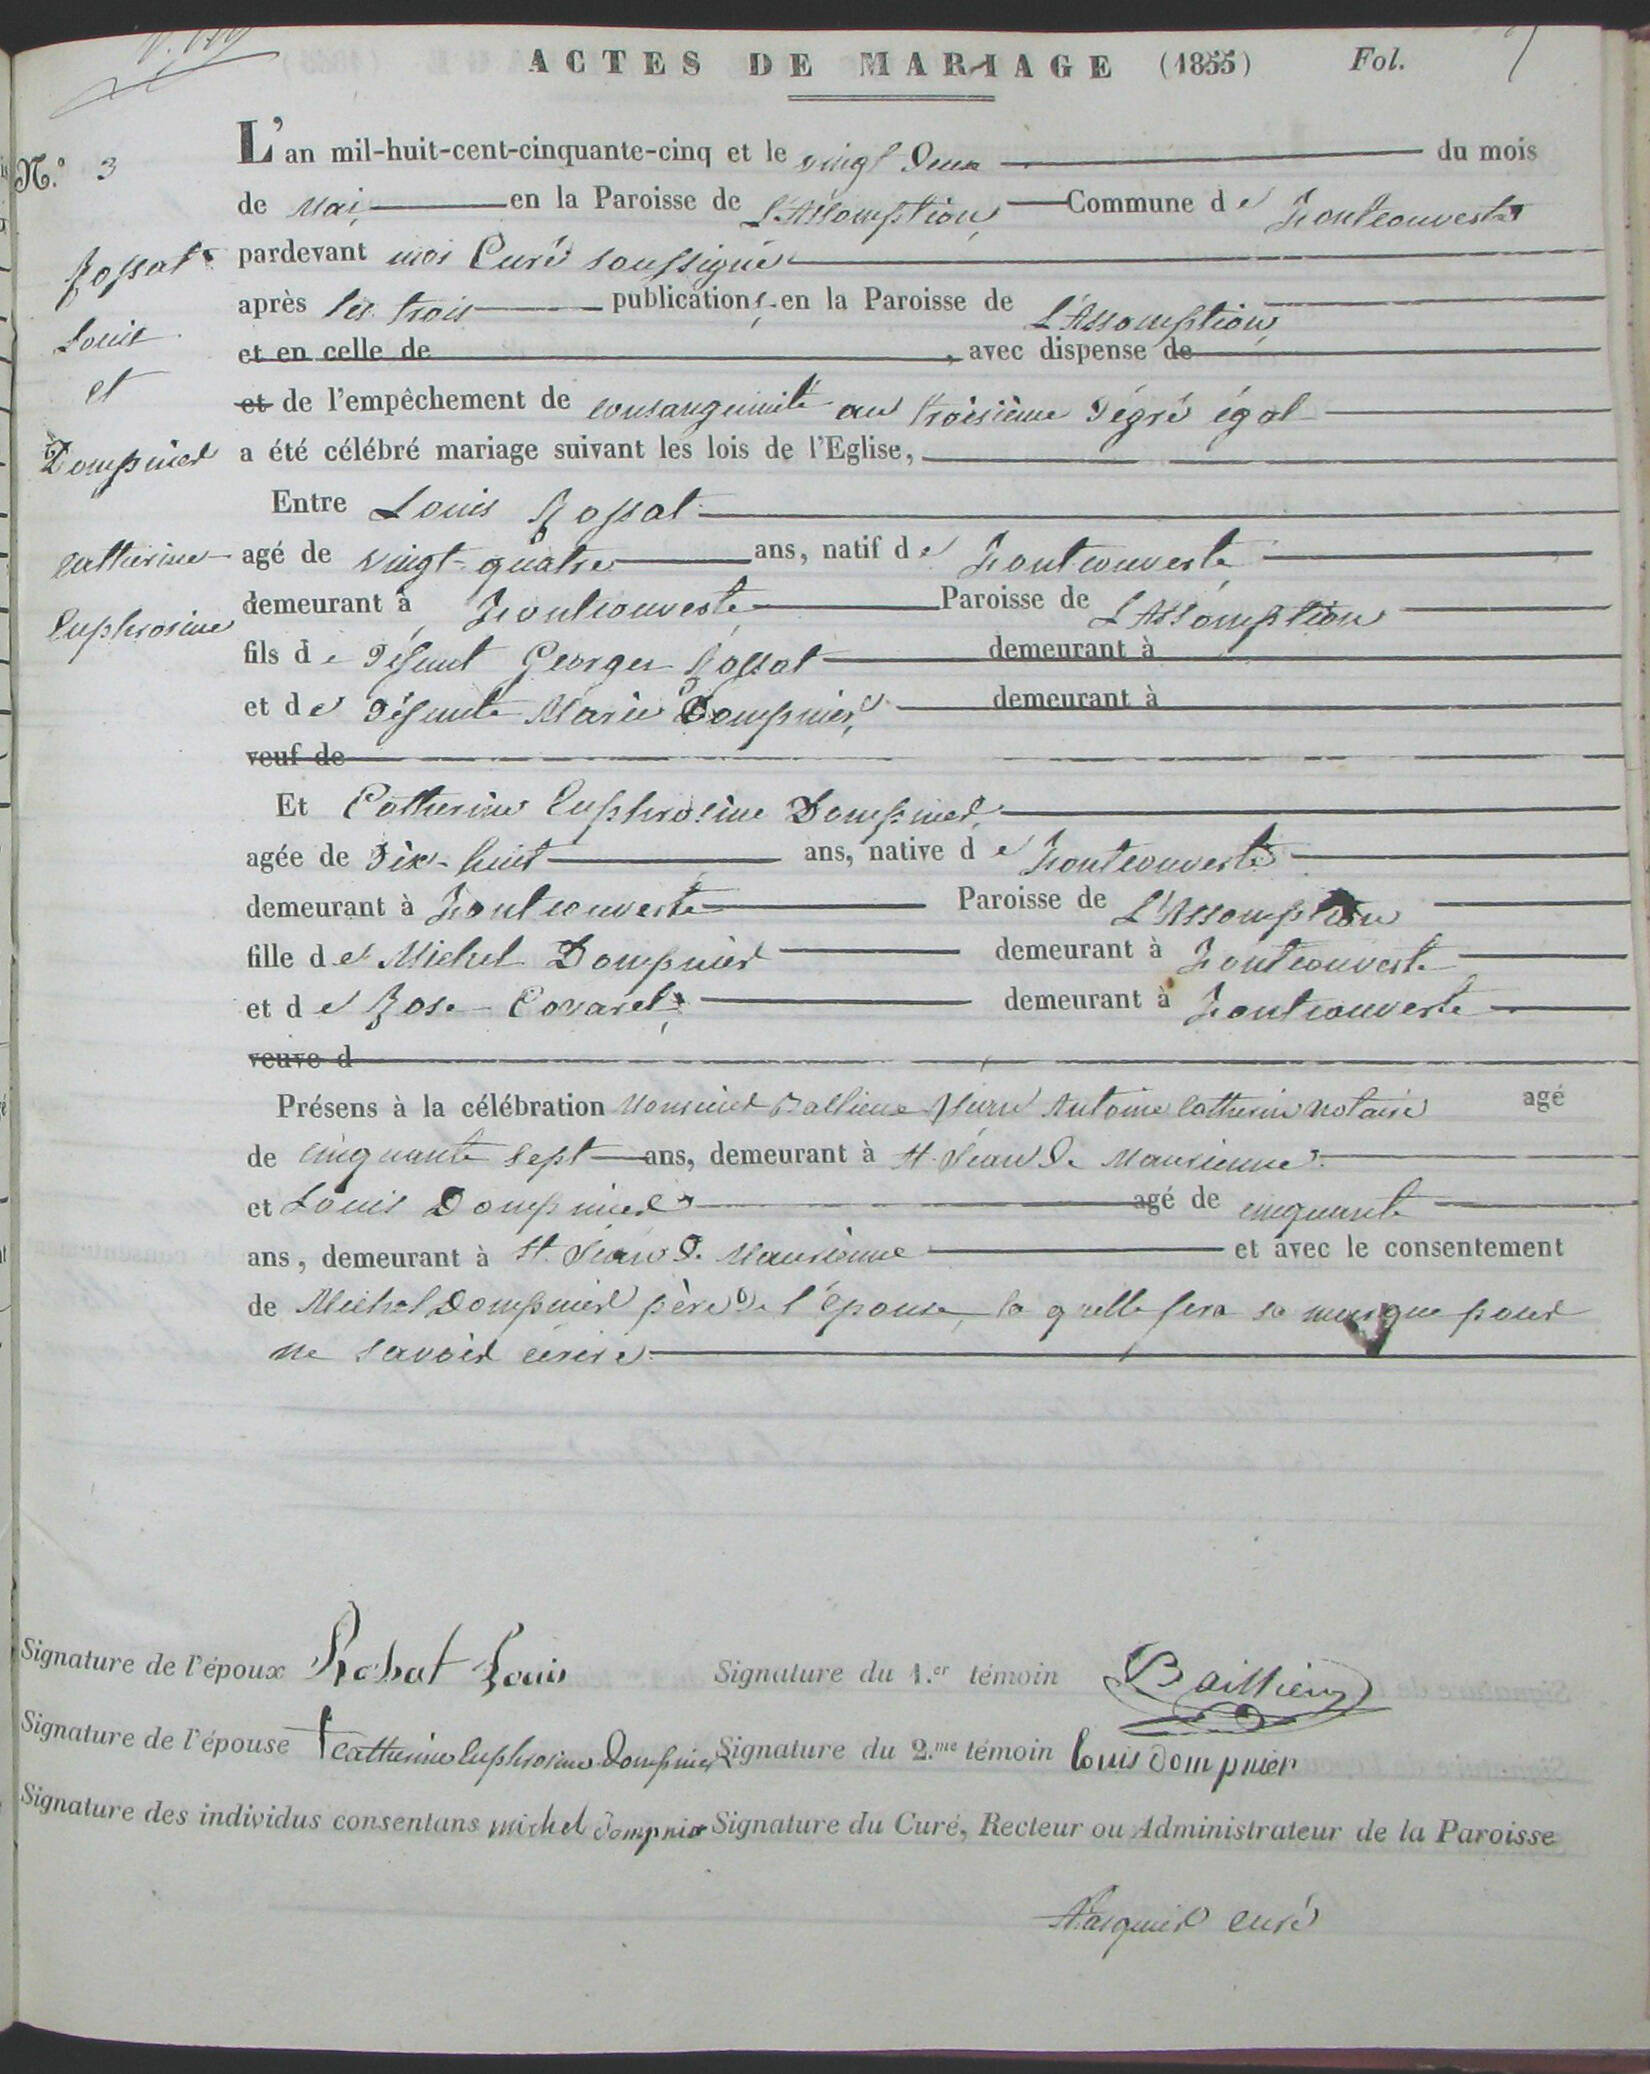 ACTES DE MARIAGE (1855) Fol.
N.º 3
L'an mil-huit-cent-cinquante-cinq et le vingt deux du mois
de Mai en la Paroisse de L'Assomption Commune de Fontcouverte
Rossat
pardevant moi Curé soussigné
après les trois publications en la Paroisse de L'Assomption
Louis
et en celle de , avec dispense de
et
et de l'empêchement de consanguinité au troisième dégré égal
Dompnier
a été célébré mariage suivant les lois de l'Eglise,
Entre Louis Rossat
Catherine
agé de vingt-quatre ans, natif de Fontcouverte
Euphrosine
demeurant à Fontcouverte Paroisse de L'Assomption
fils de défunt Georges Rossat demeurant à
et de défunte Marie Dompnier demeurant à
veuf de
Et Catherine Euphrosine Dompnier
agée de dix-huit ans, native de Fontcouverte
demeurant à Fontcouverte Paroisse de L'Assomption
fille de Michel Dompnier demeurant à Fontcouverte
et de Rose Covarel demeurant à Fontcouverte
veuve d
Présens à la célébration Monsieur Antoine Catherin notaire agé
de cinquante sept ans, demeurant à St. Jean de Maurienne
et Louis Dompnier agé de cinquante
ans, demeurant à St. Jean de Maurienne et avec le consentement
de Michel Dompnier père de l'épouse, la quelle fera sa marque pour
ne savoir écrire
Signature de l'époux Rossat Louis Signature du 1.er témoin
Signature de l'épouse † Catherine Euphrosine Dompnier Signature du 2.me témoin Louis Dompnier
Signature des individus consentans michel dompnier Signature du Curé, Recteur ou Administrateur de la Paroisse
curé